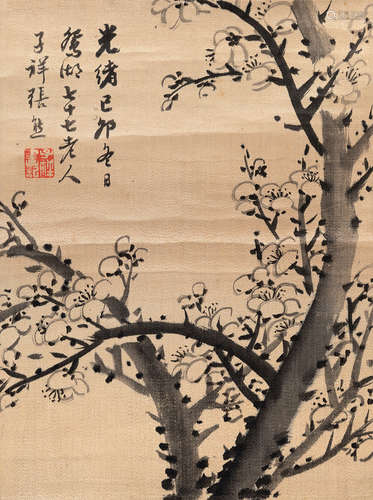 光緒己卯冬日
鴛湖七十七老人
子祥張熊